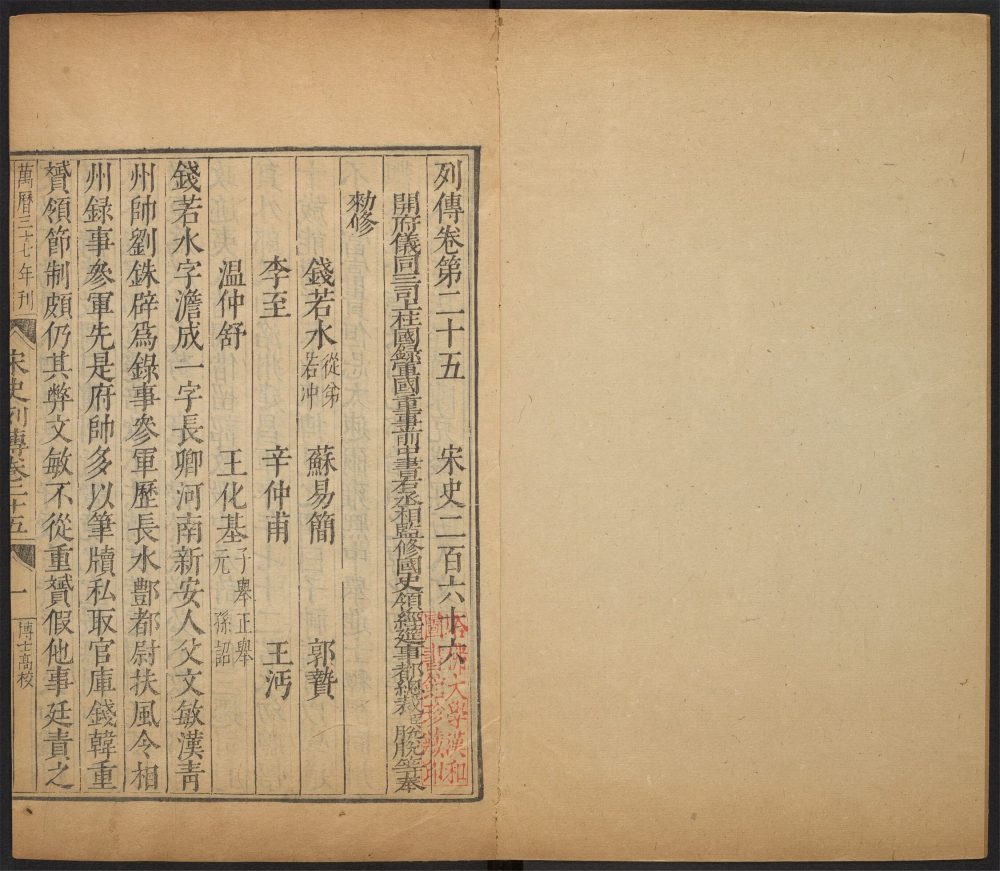 列傳卷第二十五 宋史二百六十六
開府儀同三司上柱國錄軍國重事前中書右丞相監修國史領經筵事都總裁脫脫等奉
勑修
錢若水 從弟若冲 蘇易簡 郭贄
李至 辛仲甫 王沔
温仲舒 王化基 子舉正舉元 孫詔
錢若水字澹成一字長卿河南新安人父文敏漢青
州帥劉銖辟爲錄事參軍歷長水酆都尉扶風令相
州録事參軍先是府帥多以筆牘私取官庫錢韓重
贇領節制頗仍其弊文敏不從重贇假他事廷責之
萬曆二十七年刊 宋史列傳卷二十五 一 博士高校
哈佛大學漢和圖書館珍藏印